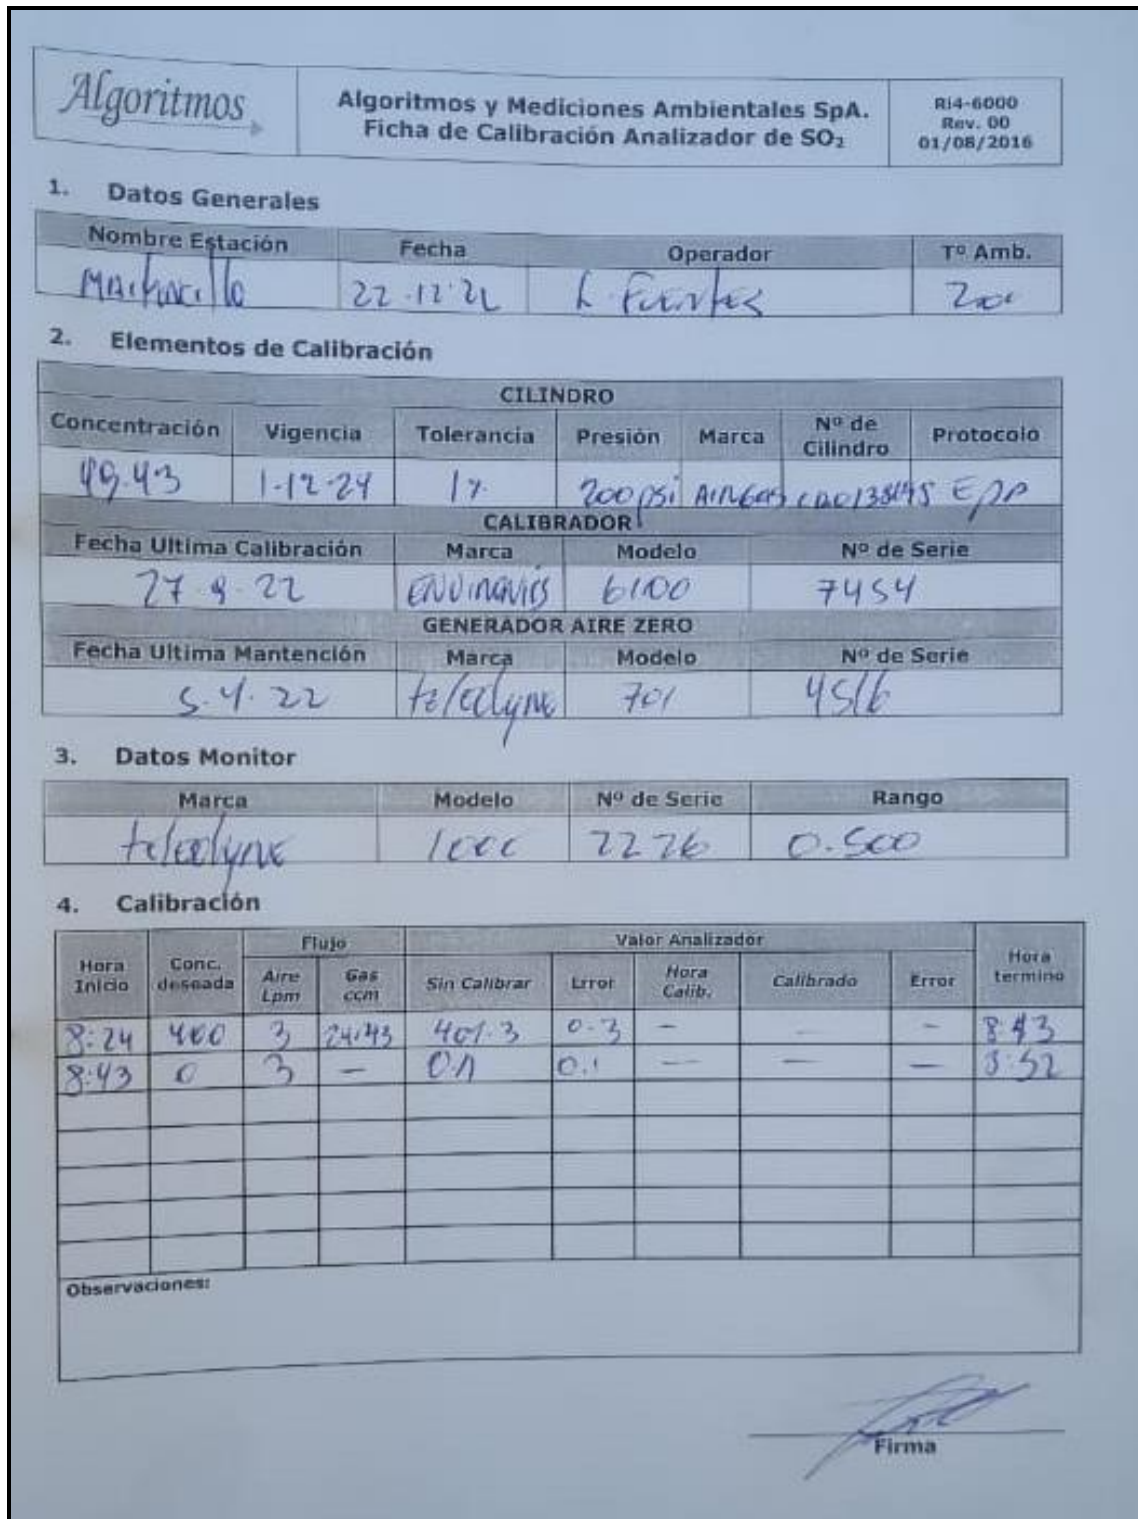 Algoritmos
Algoritmos y Mediciones Ambientales SpA.
Ficha de Calibración Analizador de SO₂
Ri4-6000
Rev. 00
01/08/2016
1. Datos Generales
Nombre Estación Fecha Operador Tº Amb.
22-12-22 L. Fuentes
2. Elementos de Calibración
CILINDRO
Concentración Vigencia Tolerancia Presión Marca Nº de Cilindro Protocolo
49.43 1-12-24 1% 200 psi AIRGAS EPA
CALIBRADOR
Fecha Ultima Calibración Marca Modelo Nº de Serie
27-9-22 6100 7454
GENERADOR AIRE ZERO
Fecha Ultima Mantención Marca Modelo Nº de Serie
5.4.22 teledyne 701 4516
3. Datos Monitor
Marca Modelo Nº de Serie Rango
teledyne 2226 0-500
4. Calibración
Hora Inicio Conc. deseada Flujo Valor Analizador Hora termino
Aire Lpm Gas ccm Sin Calibrar Error Hora Calib. Calibrado Error
8:24 400 3 24.43 401.3 0.3 — — — 8:43
8:43 0 3 — 0.1 0.1 — — — 8:52
Observaciones:
Firma